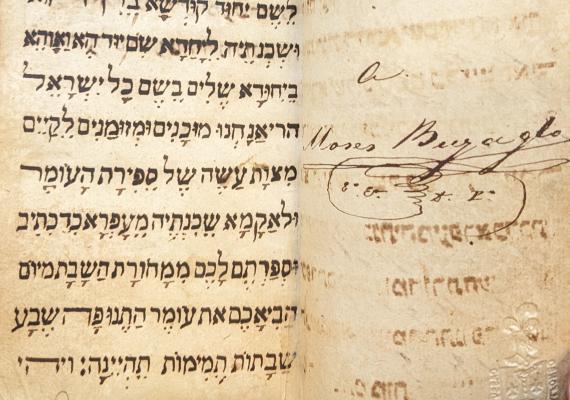 לשם יחוד קודשא
ושכנתיה ליחדא שם יוד הא ואו הא
ביחודא שלים בשם כל ישראל
הריאנחנו מוכנים ומזומנים לקיים
מצות עשה של ספירת העומר
ולאקמא שכנתיה מעפרא כדכתיב
וספרתם לכם ממחורת השבת מיום
הביאכם את עומר התנופה שבע
שבתות תמימות תהיינה: ויהי
a
Moses Buzaglo